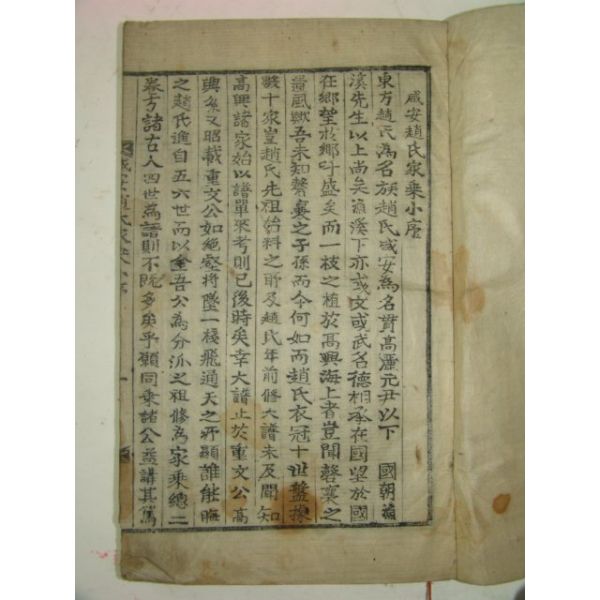 咸安趙氏家乘小序
東方趙氏為名族趙氏咸安為名貫高麗元尹以下 國朝漁
溪先生以上尚矣漁溪下亦或文或武名德相承在國望於國
在鄉望於鄉吁盛矣而一枝之植於高興海上者豈聞磬襄之
風歟吾未知磬襄之子孫而今何如而趙氏衣冠十世盤據
數十家豈趙氏先祖始料之所及趙氏年前修大譜未及聞知
高興諸家始以譜單來考則已後時矣幸大譜止於重文公高
興系又昭載重文公如絕壑將墜一棧飛通天之所顯誰能晦
之趙氏進自五六世而以金吾公為分派之祖修為家乘總二
卷方諸古人四世為譜則不既多矣乎願同乘諸公益講其篤
咸安趙氏家乘小序